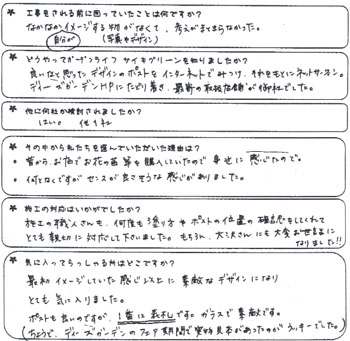 ★ 工事をされる前に困っていたことは何ですか?
なかなかイメージする物がなくて、考えがまとまらなかった。
自分が (写真やデザイン)
★ どうやってガーデンライフ サイキグリーンを知りましたか?
良いなと思ったデザインのポストをインターネットでみつけ、それをもとにネットサーフィン。
ディーズガーデンHPにたどり着き、最寄の取扱店舗が御社でした。
★ 他に何社か検討されましたか?
はい。 他1社
★ その中から私たちを選んでいただいた理由は?
・昔から、お店でお花の苗等を購入していたので身近に感じたので。
・何となくですがセンスが良さそうな感じがありました。
★ 施工の対応はいかがでしたか?
施工の職人さんも、何度も塗り方やポストの位置の確認をしてくれて
とても親切に対応して下さいました。もちろん、大沢さんにも大変お世話に
なりました!!
★ 気に入ってらっしゃる所はどこですか?
最初イメージしていた感じ以上に素敵なデザインになり
とても気に入りました。
ポストも良いのですが、1番は表札です。ガラスで素敵です。
(ちょうど、ディーズガーデンのフェア期間で実物見本があったのがラッキーでした。)